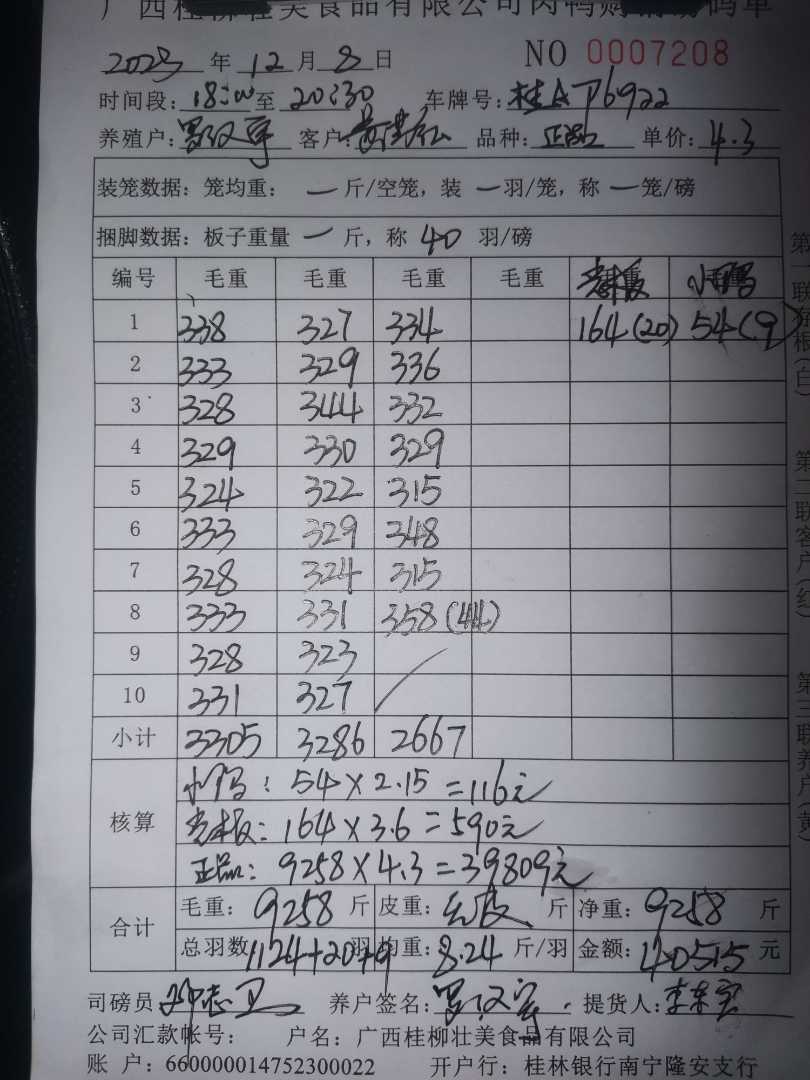 广西桂柳壮美食品有限公司肉鸭购销磅码单
2023年12月8日 NO 0007208
时间段：18:00至20:30 车牌号：桂A
养殖户：罗汉宇 客户： 品种：正品 单价：4.3
装笼数据：笼均重：一斤/空笼，装一羽/笼，称一笼/磅
捆脚数据：板子重量一斤，称40羽/磅
编号 毛重 毛重 毛重 毛重
1 338 327 334 164(20) 54(9)
2 333 329 336
3 328 344 332
4 329 330 329
5 324 322 315
6 333 329 348
7 328 324 315
8 333 331 358(44)
9 328 323
10 331 327
小计 3305 3286 2667
核算
54×2.15=116元
164×3.6=590元
正品：9258×4.3=39809元
合计
毛重：9258斤 皮重：无皮斤 净重：9258斤
总羽数1124+20+9羽 均重：8.24斤/羽 金额：40515元
司磅员 养户签名：罗汉宇 提货人：
公司汇款帐号： 户名：广西桂柳壮美食品有限公司
账 户：660000014752300022 开户行：桂林银行南宁隆安支行
第一联存根(白) 第二联客户(红) 第三联养户(黄)